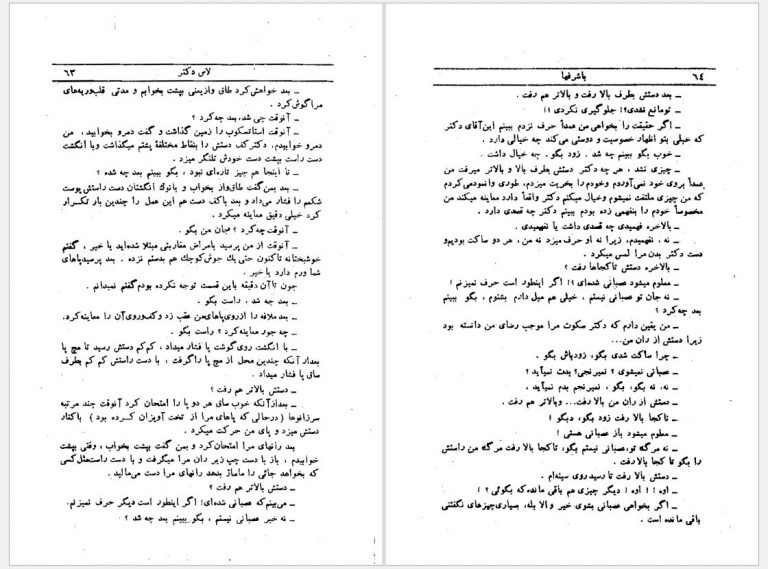 ۶۳ لاس دکتر
ــ بعد خواهش کرد طاق وازیعنی بپشت بخوابم و مدتی قلب وریه‌های
مراگوش کرد.
ــ آنوقت چی شد، بعد چه کرد؟
ــ آنوقت استاتسکوب را زمین گذاشت و گفت دمرو بخوابید، من
دمرو خوابیدم. دکتر کف دستش را بنقاط مختلفهٔ پشتم میگذاشت وبا انگشت
دست راست بپشت دست خودش تلنگر میزد.
ــ تا اینجا هم جیز تازه‌ای نبود، بگو ببینم بعد چه شده؟
ــ بعد بمن گفت طاق‌واز بخواب و بانوك انگشتان دست راستش پوست
شکمم را فشار میداد و بعد باکف دست هم این عمل را چندین بار تکرار
کرد خیلی دقیق معاینه میکرد.
ــ آنوقت چه کرد؟ جان من بگو.
ــ آنوقت از من پرسید بامراض مقاربتی مبتلا شده‌اید یا خیر، گفتم
خوشبختانه تاکنون حتی یك جوش کوچك هم بدستم نزده. بعد پرسید پاهای
شما ورم دارد یا خیر.
جون تاآن دقیقه باین قسمت توجه نکرده بودم گفتم نمیدانم.
ــ بعد چه شد، راست بگو.
ــ بعد ملافه را ازروی پاهای من عقب زد و کف وروی آن را معاینه کرد.
ــ چه جور معاینه کرد؟ راست بگو.
ــ با انگشت روی گوشت پا فشار میداد، کم‌کم دستش رسید تا مچ پا
بعداز آنکه چندین محل از مچ پا را گرفت، با دست راستش کم کم بطرف
ساق پا فشار میداد.
ــ دستش بالاتر هم رفت؟
ــ بعدازآنکه خوب ساق هر دو پا را امتحان کرد آنوقت چند مرتبه
سرزانوها (درحالی که پاهای مرا از تخت آویزان کرده بود) باکنار
دستش میزد و پای من حرکت میکرد.
بعد رانهای مرا امتحان کرد و بمن گفت بپشت بخواب، وقتی بپشت
خوابیدم، باز با دست چپ زیر ران مرا میگرفت و با دست راست مثل کسی
که بخواهد جائی را ماساژ بدهد رانهای مرا دست می‌مالید.
ــ دستش بالاتر هم رفت؟
ــ می‌بینم که عصبانی شده‌ای! اگر اینطور است دیگر حرف نمیزنم.
ــ نه خیر عصبانی نیستم، بگو ببینم بعد چه شد؟
۶۴ باشرفها
ــ بعد دستش بطرف بالا رفت و بالاتر هم رفت.
ــ تومانع نشدی؟! جلوگیری نکردی؟!
ــ اگر حقیقت را بخواهی من عمداً حرف نزدم ببینم این آقای دکتر
که خیلی بتو اظهار خصوصیت و دوستی می‌کند چه خیالی دارد.
ــ خوب بگو ببینم چه شد. زود بگو، چه خیال داشت.
ــ چیزی نشد، هر چه دکتر دستش بطرف بالا و بالاتر میرفت من
عمداً بروی خود نمی‌آوردم وخودم را بخریت میزدم، طوری وانمودمی‌کردم
که من چیزی ملتفت نمیشوم وخیال میکنم دکتر واقعاً دارد معاینه میکند من
مخصوصاً خودم را بنفهمی زده بودم ببینم دکتر چه قصدی دارد.
ــ بالاخره فهمیدی چه قصدی داشت یا نفهمیدی.
ــ نه، نفهمیدم، زیرا نه او حرف میزد نه من، هر دو ساکت بودیم و
دست دکتر بدن مرا لمس میکرد.
ــ بالاخره دستش تاکجاها رفت؟
ــ معلوم میشود عصبانی شده‌ای؟! اگر اینطور است حرف نمیزنم!
ــ نه جان تو عصبانی نیستم، خیلی هم میل دارم بشنوم، بگو ببینم
بعد چه کرد؟
ــ من یقین دارم که دکتر سکوت مرا موجب رضای من دانسته بود
زیرا دستش از ران من...
ــ چرا ساکت شدی بگو، زودباش بگو.
ــ عصبانی نمیشوی؟ نمیرنجی؟ بدت نمیآید؟
ــ نه، نه بگو، بگو، نمیرنجم بدم نمیآید.
ــ دستش از ران من بالا رفت... وبالاتر هم رفت.
ــ تاکجا بالا رفت زود بگو، دبگو!
ــ معلوم میشود باز عصبانی هستی!
ــ نه مرگه تو، عصبانی نیستم بگو، تاکجا بالا رفت مرگه من راستش
را بگو تا کجا بالا رفت.
ــ دستش بالا رفت تا رسید روی سینه‌ام.
ــ اوه!!! اوه! دیگر چیزی هم باقی مانده که بگوئی؟!
ــ اگر بخواهی عصبانی بشوی خیر والا بله، بسیاری چیزهای نگفتنی
باقی مانده است.